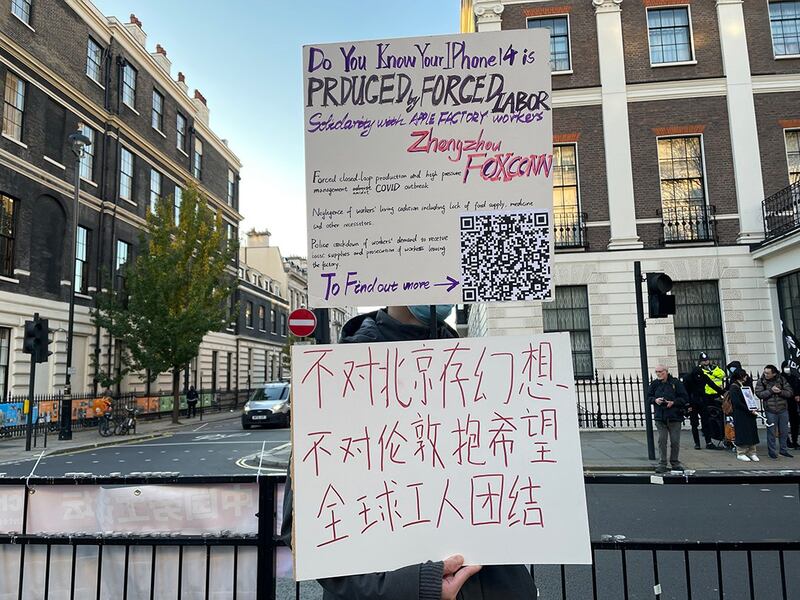 Do You Know Your IPhone14 is
PRDUCED by FORCED LABOR
Solidarity with APPLE FACTORY workers
Zhengzhou
FOXCONN
Forced closed-loop production and high pressure
management amidst COVID outbreak
Neglegence of workers' living condition including lack of food supply, medicine
and other necessities.
Police crackdown of workers' demand to receive
basic supplies and prosecution of workers leaving
the factory.
To Find out more →
不对北京存幻想、
不对伦敦抱希望
全球工人团结